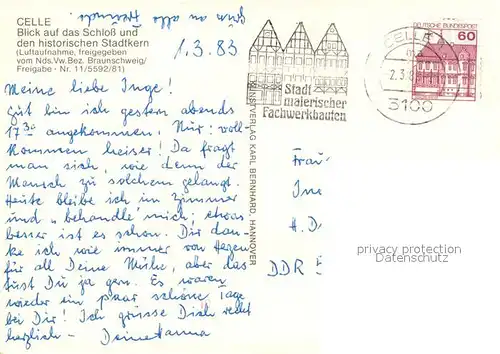 CELLE
Blick auf das Schloß und
den historischen Stadtkern
(Luftaufnahme, freigegeben
vom Nds.Vw.Bez. Braunschweig/
Freigabe - Nr. 11/5592/81)
Gruß an alle Freunde
1.3.83
Meine liebe Inge!
Gut bin ich gestern abends
17³⁰ angekommen. Nur: voll-
kommen heiser! Da fragt
man sich, wie denn der
Mensch zu solchem gelangt.
Heute bleibe ich im Zimmer
und "behandle" mich; etwas
besser ist es schon. Dir dan-
ke ich wie immer von Herzen
für all Deine Mühe, aber das
tust Du ja gern. Es waren
wieder ein paar schöne Tage
bei Dir! Ich grüsse Dich recht
herzlich - Deine Hanna
KUNSTVERLAG KARL BERNHARD, HANNOVER
Stadt
malerischer
Fachwerkbauten
CELLE
2.3.8
3100
DEUTSCHE BUNDESPOST
60
Frau
In
H. D
DDR
privacy protection
Datenschutz